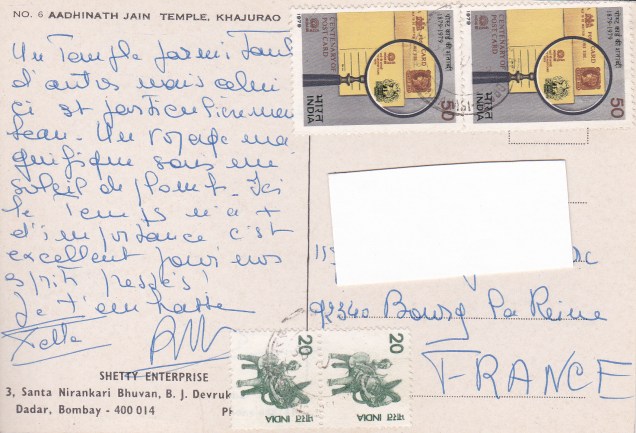 NO. 6 AADHINATH JAIN TEMPLE, KHAJURAO
Un Temple parmi Tant
d'autres mais celui
ci est particulièrement
beau. Un voyage ma
gnifique sous un
soleil de plomb. Ici
le Temps n'a +
d'importance c'est
excellent pour nos
esprits pressés!
Je t'embrasse
SHETTY ENTERPRISE
3, Santa Nirankari Bhuvan, B. J. Devruk
Dadar, Bombay - 400 014
PH
1979
CENTENARY OF
POST CARD
1879-1979
भारत
INDIA
50
1979
CENTENARY OF
POST CARD
1879-1979
भारत
INDIA
50
92340 Bourg La Reine
FRANCE
20
भारत INDIA
20
भारत INDIA